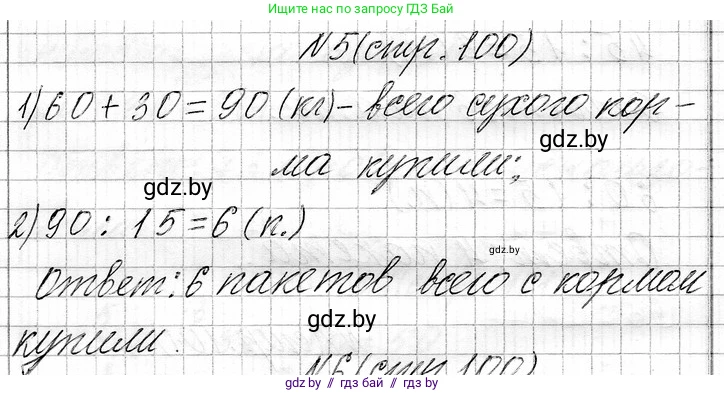 Ищите нас по запросу ГДЗ Бай
N5(стр. 100)
1) 60 + 30 = 90 (кг) - всего сухого кор-
gdz.by
ма купили;
gdz.by
2) 90 : 15 = 6 (п.)
gdz.by
Ответ: 6 пакетов всего с кормом
gdz.by
купили.
N6(стр 100)
gdz.by // гдз бай // гдз.бай